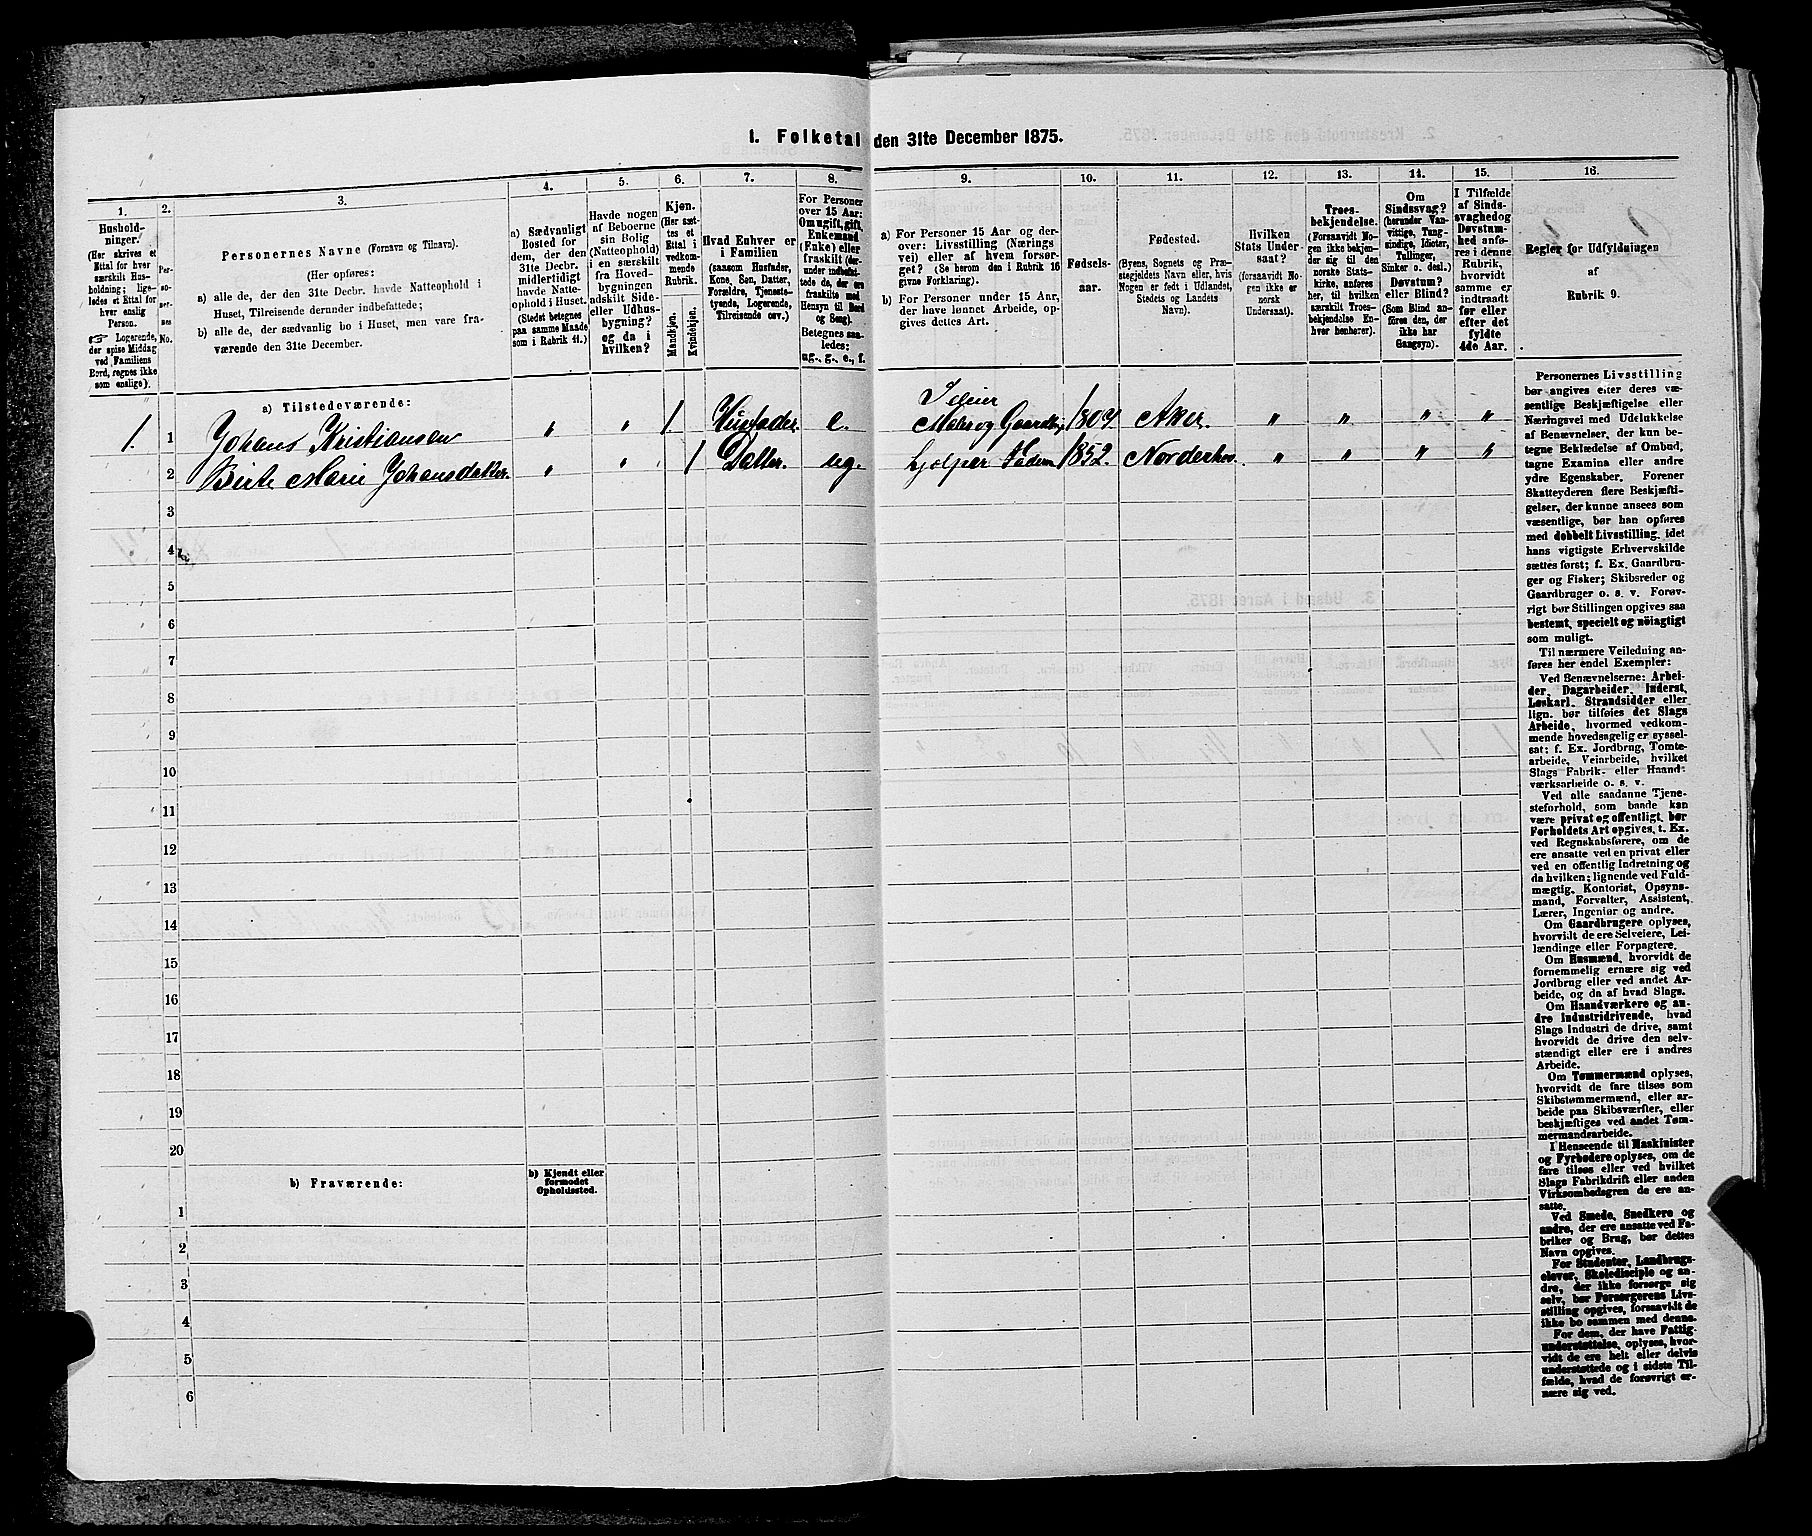 1. Folketal den 31te December 1875.
1.
Hushold-
ninger.
(Her skrives et
Ettal for hver
særskilt Hus-
holdning; lige-
ledes et Ettal for
hver enslig
Person.
☞ Logerende,
der spise Middag
ved Familiens
Bord, regnes ikke
som enslige).
2.
Per-
so-
ner-
nes
No.
3.
Personernes Navne (Fornavn og Tilnavn).
(Her opføres:
a) alle de, der den 31te Decbr. havde Natteophold i
Huset, Tilreisende derunder indbefattede;
b) alle de, der sædvanlig bo i Huset, men vare fra-
værende den 31te December.
4.
a) Sædvanligt
Bosted for
dem, der den
31te Decbr.
midlertidigt
havde Natte-
ophold i Huset.
(Stedet betegnes
paa samme Maade
som i Rubrik 11.)
5.
Havde nogen
af Beboerne
sin Bolig
(Natteophold)
i en særskilt
fra Hoved-
bygningen
adskilt Side-
eller Udhus-
bygning?
og da i
hvilken?
6.
Kjøn.
(Her sæt-
tes et
Ettal i
vedkom-
mende
Rubrik.
Mandkjøn.
Kvindekjøn.
7.
Hvad Enhver er
i Familien
(saasom Husfader,
Kone, Søn, Datter,
Forældre, Tjeneste-
tyende, Logerende,
Tilreisende osv.)
8.
For Personer
over 15 Aar:
Om ugift, gift,
Enkemand
(Enke) eller
fraskilt (der-
under indbefat-
tede de, der ere
fraskilte med
Hensyn til Bord
og Seng).
Betegnes saa-
ledes:
ug., g., e., f.
9.
a) For Personer 15 Aar og der-
over: Livsstilling (Nærings
vei) eller af hvem forsør-
get? (Se herom den i Rubrik 16
givne Forklaring).
b) For Personer under 15 Aar,
der have lønnet Arbeide, op-
gives dettes Art.
10.
Fødsels-
aar.
11.
Fødested.
(Byens, Sognets og Præ-
stegjeldets Navn eller, hvis
Nogen er født i Udlandet,
Stedets og Landets
Navn).
12.
Hvilken
Stats Under-
saat?
(forsaavidt No-
gen ikke er
norsk
Undersaat).
13.
Troes-
bekjendelse.
(Forsaavidt No-
gen ikke bekjen-
der sig til den
norske Stats-
kirke, anføres
her, til hvilken
særskilt Troes-
bekjendelse En-
hver henhører).
14.
Om
Sindssvag?
(herunder Van-
vittige, Tung-
sindige, Idioter,
Tullinger,
Sinker o. desl.)
Døvstum?
eller Blind?
(Som Blind an-
føres den, der
ikke har
Gangsyn).
15.
I Tilfælde
af Sinds-
svaghed og
Døvstum-
hed anfø-
res i denne
Rubrik,
hvorvidt
samme er
indtraadt
før eller
efter det
fyldte
4de Aar.
16.
Regler for Udfyldningen
af
Rubrik 9.
a) Tilstedeværende:
1. 1 Johans Kristiansen " " 1 Husfader. e. Selveier 1807 Aker. " " " "
2 Birte Marie Johansdatter. " " 1 Datter. ug. hjelper Faderen 1852. Norderhov. " " " "
3
4
5
6
7
8
9
10
11
12
13
14
15
16
17
18
19
20
b) Fraværende:
b) Kjendt eller
formodet
Opholdssted.
1
2
3
4
5
6
Personernes Livsstilling
bør angives efter deres væ-
sentlige Beskjæftigelse eller
Næringsvei med Udelukkelse
af Benævnelser, der kun be-
tegne Beklædelse af Ombud,
tagne Examina eller andre
ydre Egenskaber. Forener
Skatteyderen flere Beskjæfti-
gelser, der kunne ansees som
væsentlige, bør han opføres
med dobbelt Livsstilling, idet
hans vigtigste Erhvervskilde
sættes først; f. Ex. Gaardbru-
ger og Fisker; Skibsreder og
Gaardbruger o. s. v. Forøv-
rigt bør Stillingen opgives saa
bestemt, specielt og nöiagtigt
som muligt.
Til nærmere Veiledning an-
føres her endel Exempler:
Ved Benævnelserne: Arbei-
der, Dagarbeider, Inderst,
Løskarl, Strandsidder eller
lign. bør tilføies det Slags
Arbeide, hvormed vedkom-
mende hovedsagelig er syssel-
sat; f. Ex. Jordbrug, Tomte-
arbeide, Veiarbeide, hvilket
Slags Fabrik- eller Haand-
værksarbeide o. s. v.
Ved alle saadanne Tjene-
steforhold, som baade kan
være privat og offentligt, bør
Forholdets Art opgives, t. Ex.
ved Regnskabsførere, om de
ere ansatte ved en privat eller
ved en offentlig Indretning og
da hvilken; lignende ved Fuld-
mægtig, Kontorist, Opsyns-
mand, Forvalter, Assistent,
Lærer, Ingeniør og andre.
Om Gaardbrugere oplyses,
hvorvidt de ere Selveiere, Lei-
lændinge eller Forpagtere.
Om Husmænd, hvorvidt de
fornemmelig ernære sig ved
Jordbrug eller ved andet Ar-
beide, og da af hvad Slags.
Om Haandværkere og an-
dre Industridrivende, hvad
Slags Industri de drive, samt
hvorvidt de drive den selv-
stændigt eller ere i andres
Arbeide.
Om Tømmermænd oplyses,
hvorvidt de fare tilsøs som
Skibstømmermænd, eller ar-
beide paa Skibsværfter, eller
beskjæftiges ved andet Tøm-
mermandsarbeide.
I Henseende til Maskinister
og Fyrbødere oplyses, om de
fare tilsøs eller ved hvilket
Slags Fabrikdrift eller anden
Virksomhedsgren de ere an-
satte.
Ved Smede, Snedkere og
andre, der ere ansatte ved Fa-
briker og Brug, bør dettes
Navn opgives.
For Studenter, Landbrugs-
elever, Skoledisciple og an-
dre, der ikke forsørge sig
selv, bør Forsørgerens Livs-
stilling opgives, forsaavidt de
ikke bo sammen med denne.
For dem, der have Fattig-
understøttelse, oplyses, hvor-
vidt de ere helt eller delvis
understøttede og i sidste Til-
fælde, hvad de forøvrigt er-
nære sig ved.